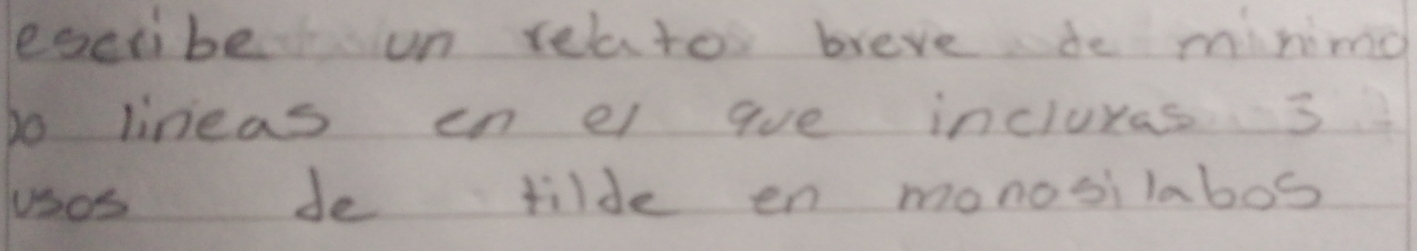 escribe un relato breve de minimo
10 lineas en el que incluyas 3
usos de tilde en monosilabos